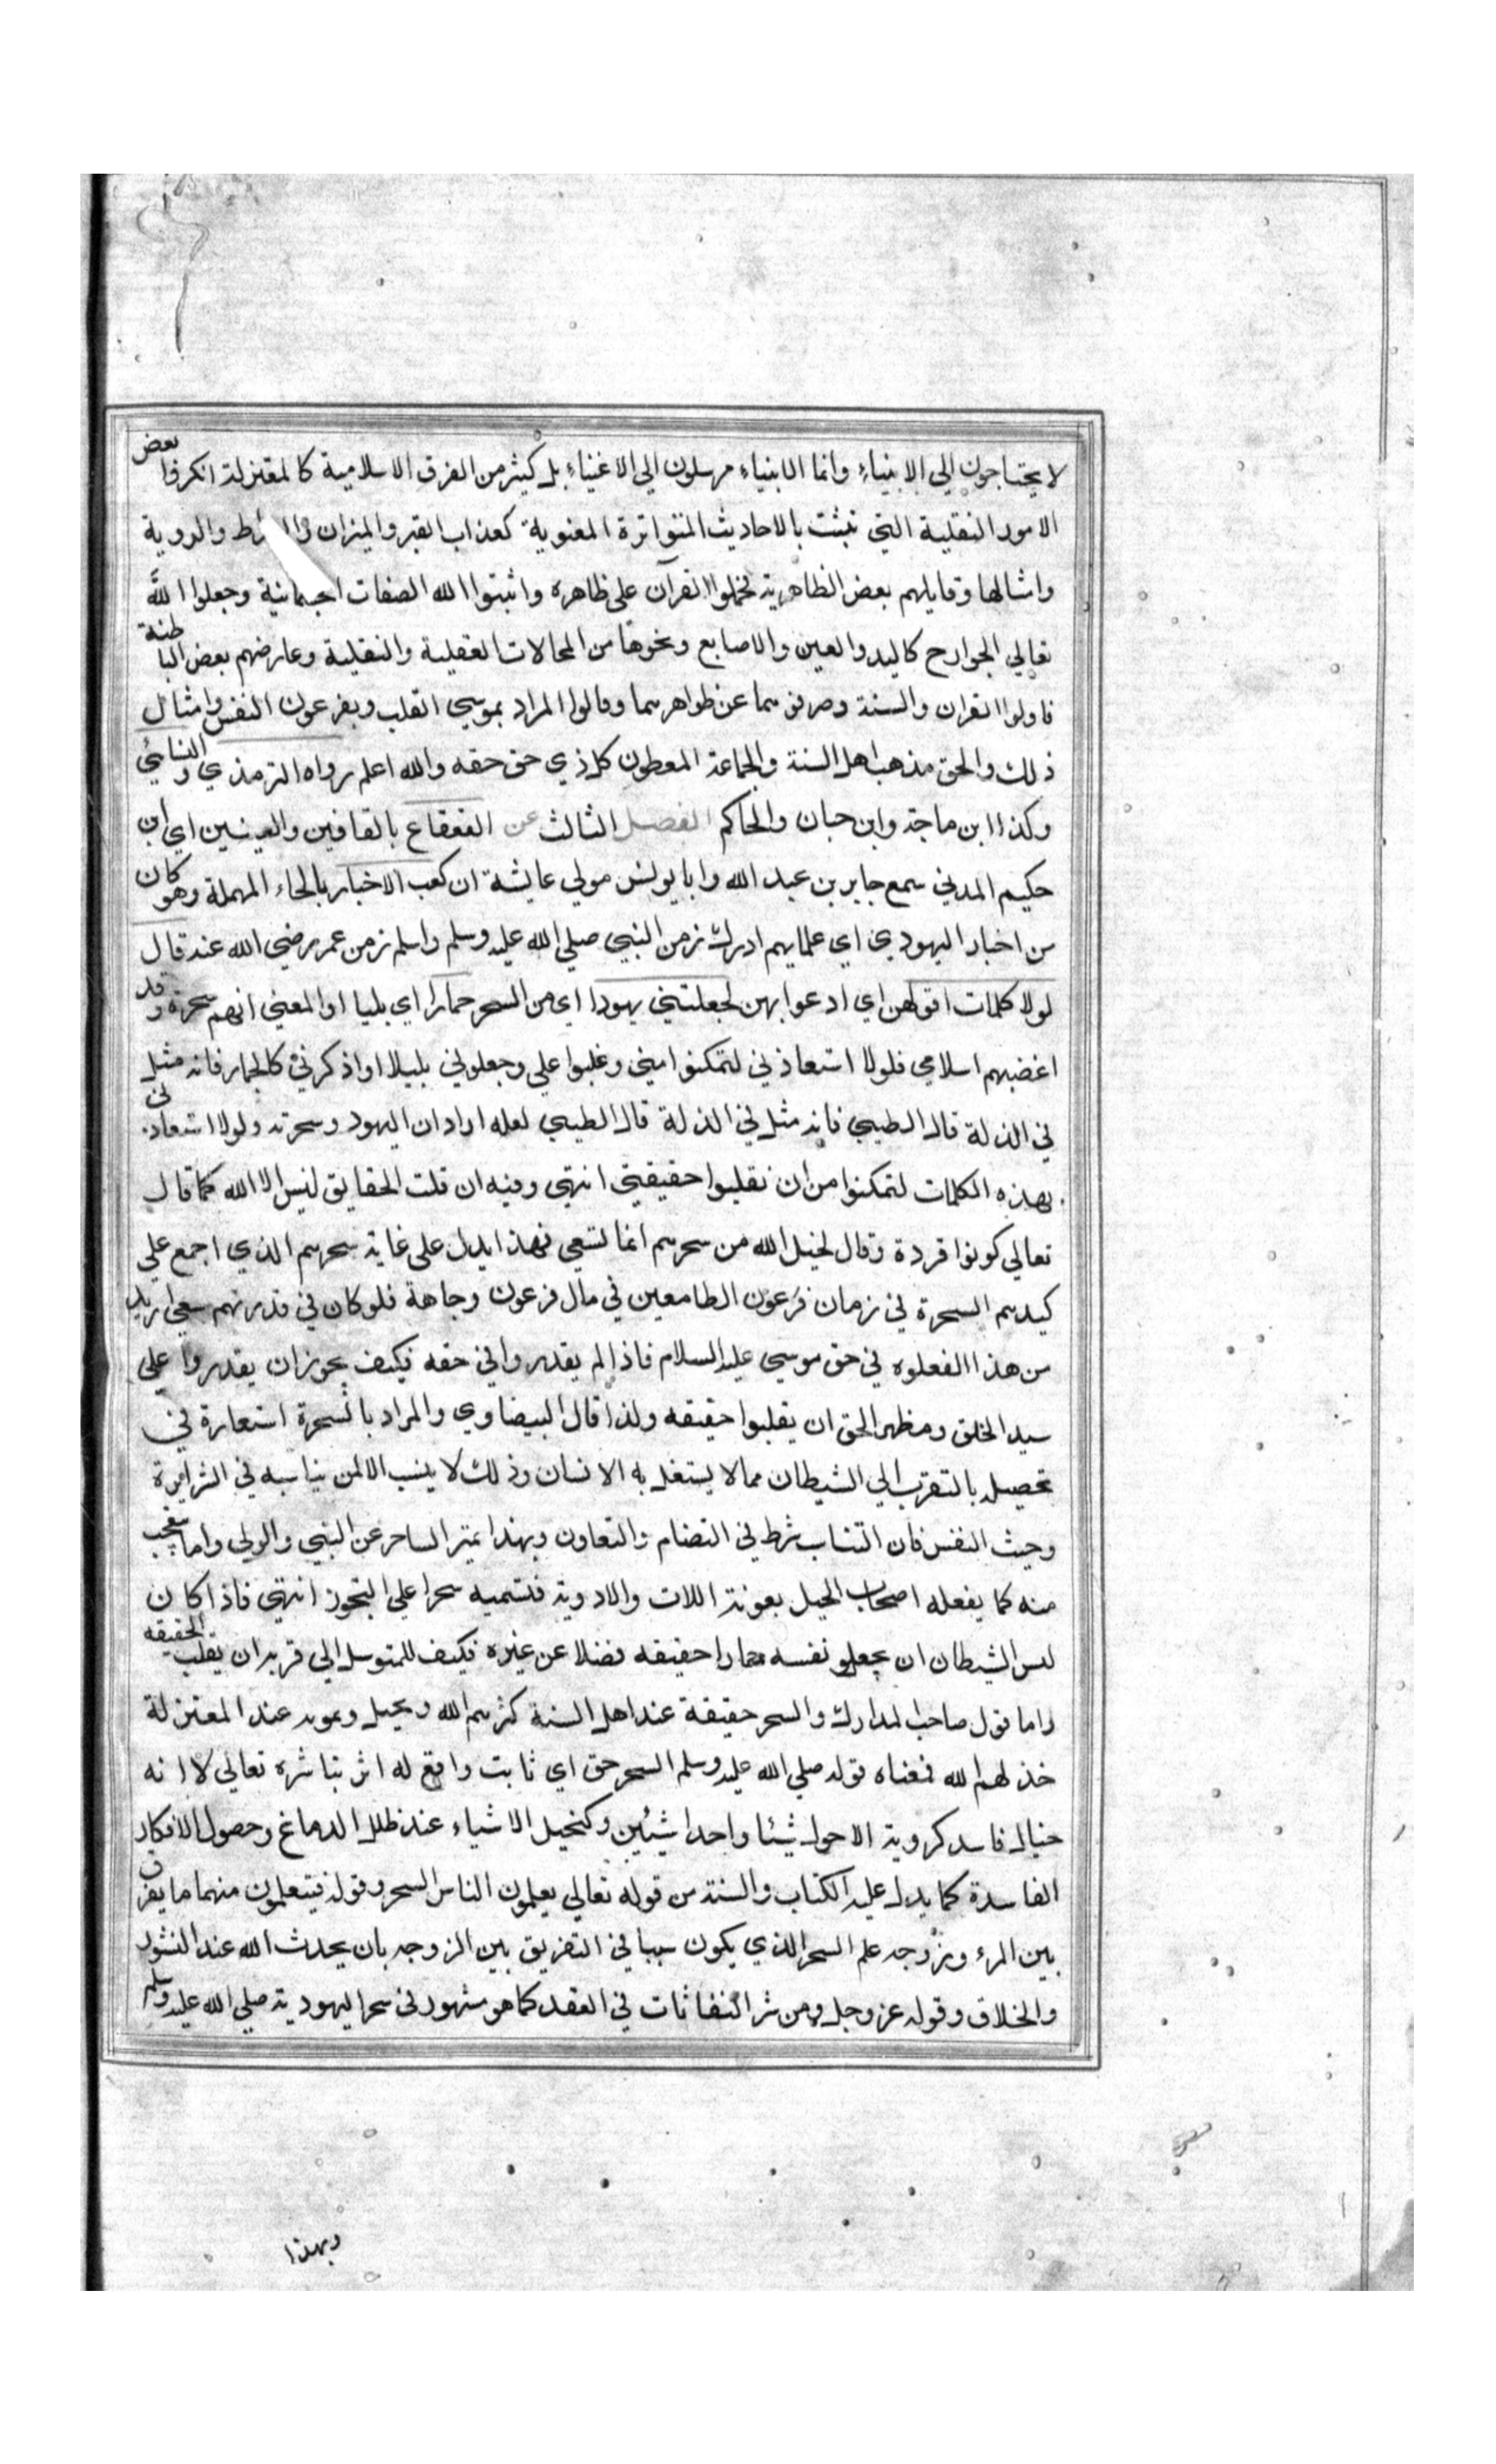 لا يحتاجون الي الانبياء وانما الانبياء مرسلون الي الاغنياء بل كثير من الفرق الاسلامية كالمعتزلة انكروا بعض
الامور النقلية التي تبثت بالاحاديث المتواترة المعنوية كعذاب القبر والميزان والروية
وامثالها وقابلهم بعض الظاهرية فحملوا القرآن على ظاهره واثبتوا الله الصفات الجسمانية وجعلوا الله
تعالي الجوارح كاليد والعين والاصابع ونحوها من المحالات العقلية والنقلية وعارضهم بعض الباطنة
فاولوا القران والسنة وصرفوهما عن ظواهرهما وقالوا المراد بموسي القلب وبفرعون النفس وامثال
ذلك والحق مذهب اهل السنة والجماعة المعطون كل ذي حق حقه والله اعلم رواه الترمذي والنسائي
وكذا ابن ماجة وابن حبان والحاكم الفصل الثالث عن القعقاع بالقافين والعينين اي ابن
حكيم المدني سمع جابر بن عبد الله وابا يونس مولي عايشة ان كعب الاحبار بالحاء المهملة وهو كان
من احبار اليهود ي اي علمايهم ادرك زمن النبي صلي الله عليه وسلم واسلم زمن عمر رضي الله عنه قال
لولا كلمات اقولهن اي ادعوا بهن لجعلتني يهودا اي من السحر حمارا اي بليا او المعني انهم سحرة وقد
اغضبهم اسلامي فلولا استعاذني لتمكنوا مني وغلبوا علي وجعلوني بليلا او اذكرني كالحمار فانه مثل
في الذلة قال الطيبي فانه مثل في الذلة قال الطيبي لعله اراد ان اليهود وسحرته ولولا استعاذني
بهذه الكلمات لتمكنوا من ان نقلبوا حقيقتي انتهي وفيه ان قلت الحقايق ليس الا الله كما قال
تعالي كونوا قردة وقال لخيل الله من سحرهم انما لتسعي فهذا يدل على غاية سحرهم الذي اجمع علي
كيدهم السحرة في زمان فرعون الطامعين في مال فرعون وجاهة فلو كان في قدرتهم
من هذا الفعلوه في حق موسي عليه السلام فاذا لم يقدروا في حقه فكيف يجوز ان يقدروا علي
سيد الخلق ومظهر الحق ان يقلبوا حقيقه ولذا قال البيضاوي والمراد بالسحرة استعارة في
تحصيله بالتقرب الي الشيطان مما لا يستغل به الانسان وذلك لا ينسب الا لمن يناسبه في الشرايرة
وحيث النفس فان التناسب شرط في التضام والتعاون وبهذا تميز الساحر عن النبي والولي واما يتعجب
منه كما يفعله اصحاب الحيل بعونة اللات والادوية فتسميه سحرا علي التجوز انتهي فاذا كان
ليس الشيطان ان يجعلو نفسه حمارا حقيقه فضلا عن غيره فكيف للمتوسل الي قربه ان يقلب الحقيقه
واما قول صاحب المدارك والسحر حقيقة عند اهل السنة كثرهم الله وتخيل وتمويه عند المعتزلة
خذلهم الله فمعناه قوله صلي الله عليه وسلم السحر حق اي ثابت واقع له اثر بتاثره تعالي لا انه
خيال فاسد كروية الاحول شيئا واحدا شيئين وكتخيل الاشياء عند خلل الدماغ وحصول الافكار
الفاسدة كما يدل عليه الكتاب والسنة من قوله تعالي يعلمون الناس السحر وقوله فيتعلمون منهما ما يفرق
بين المرء وزوجه علم السحر الذي يكون سببا في التفريق بين الزوجه بان يحدث الله عند النشور
والخلاق وقوله عز وجل ومن شر النفاثات في العقد كما هو مشهور في سحر اليهودية صلي الله عليه وسلم
وبهذا